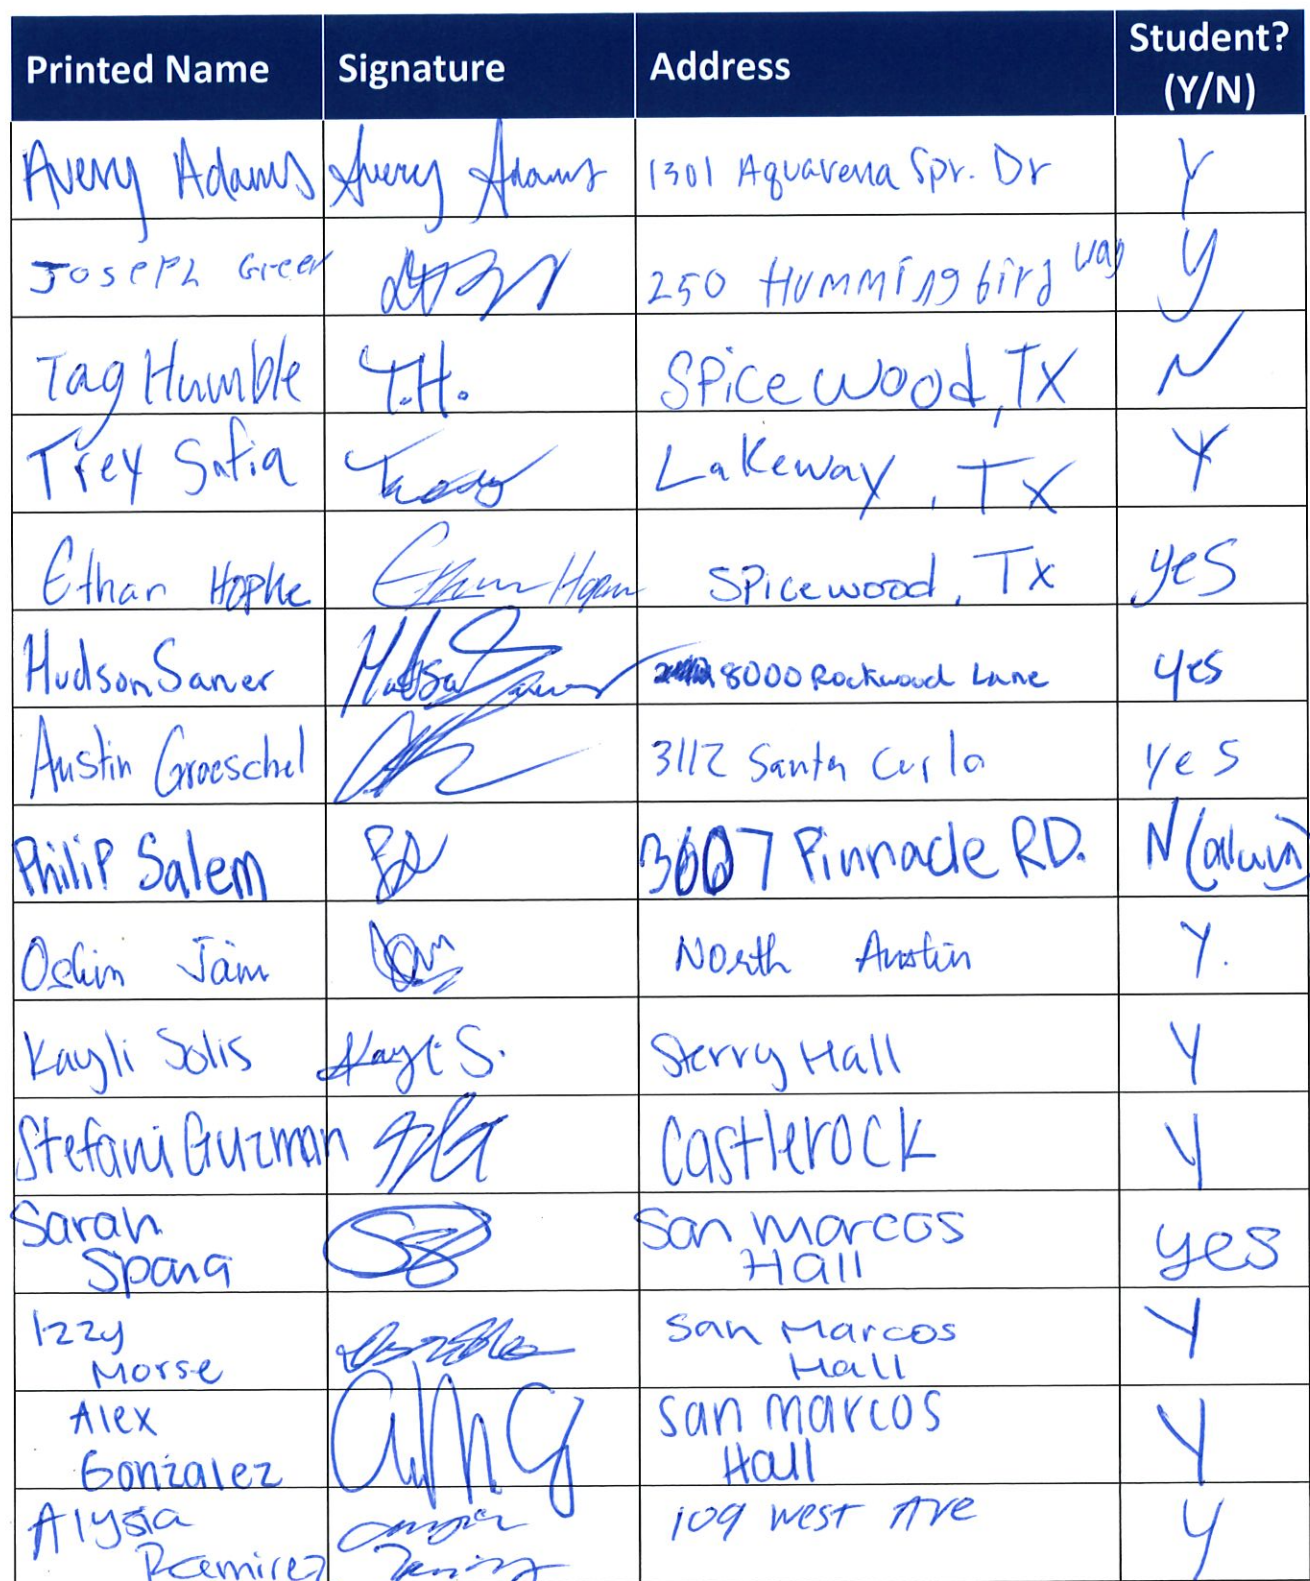 Printed Name Signature Address Student? (Y/N)
Avery Adams Avery Adams 1301 Aquarena Spr. Dr Y
Joseph Greer 250 Hummingbird Way Y
Tag Humble T.H. Spicewood, TX N
Trey Safia Lakeway, TX Y
Ethan Hopke Ethan Spicewood, Tx yes
Hudson Saner Hudson Saner 8000 Rockwood Lane yes
Austin Groeschel 3112 Santa yes
Philip Salem 3607 Pinnacle RD. N (alum)
Oshin Jain North Austin Y.
Kayli Solis Kayli S. Sterry Hall Y
Stefani Guzman Castlerock Y
Sarah Spana San Marcos Hall yes
Izzy Morse San Marcos Hall Y
Alex Gonzalez AMG San Marcos Hall Y
Alysia Ramirez 109 West Ave Y